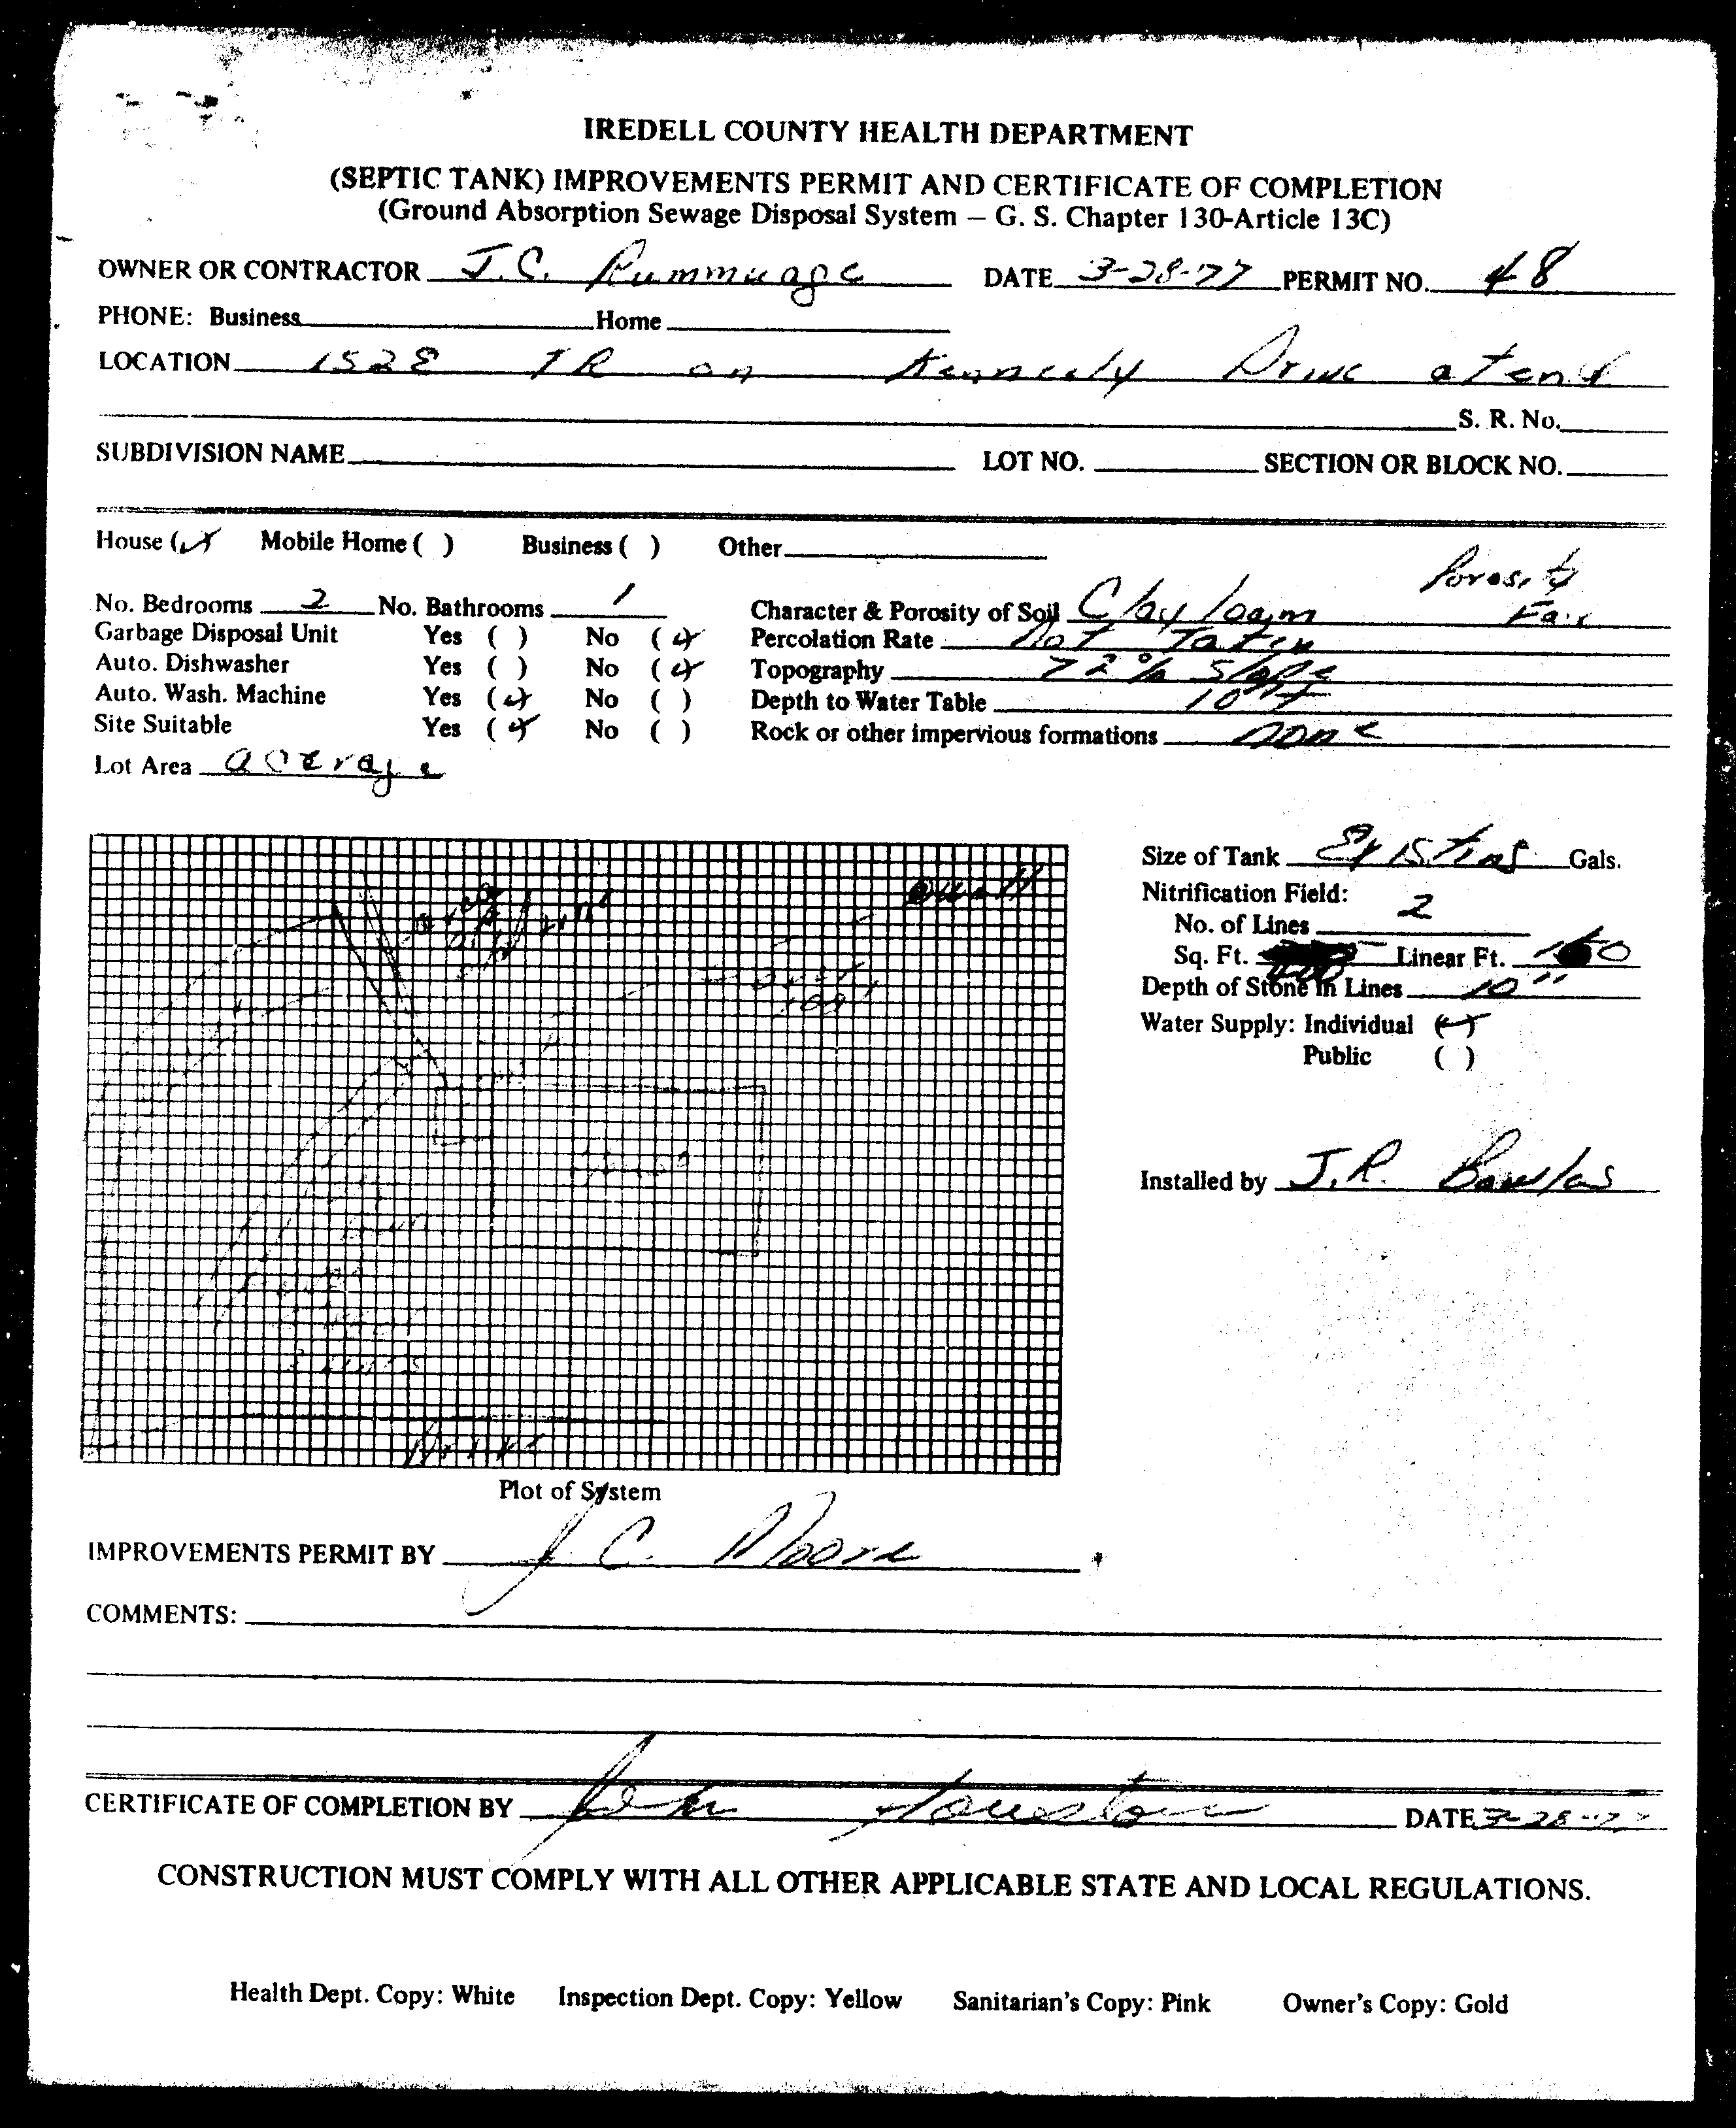 IREDELL COUNTY HEALTH DEPARTMENT
(SEPTIC TANK) IMPROVEMENTS PERMIT AND CERTIFICATE OF COMPLETION
(Ground Absorption Sewage Disposal System – G. S. Chapter 130-Article 13C)
OWNER OR CONTRACTOR J.C. Rummuage DATE 3-28-77 PERMIT NO. 48
PHONE: Business Home
LOCATION 1528 TR on Kennedy Drive at end
S. R. No.
SUBDIVISION NAME LOT NO. SECTION OR BLOCK NO.
House ( ) Mobile Home ( ) Business ( ) Other
Porosity
No. Bedrooms 2 No. Bathrooms 1 Character & Porosity of Soil Clay loam Fair
Garbage Disposal Unit Yes ( ) No ( ) Percolation Rate Not Taken
Auto. Dishwasher Yes ( ) No ( ) Topography >2% Slope
Auto. Wash. Machine Yes ( ) No ( ) Depth to Water Table 10 ft
Site Suitable Yes ( ) No ( ) Rock or other impervious formations none
Lot Area acerage
Size of Tank Existing Gals.
Nitrification Field:
No. of Lines 2
Sq. Ft. Linear Ft.
Depth of Stone in Lines 10"
Water Supply: Individual ( )
Public ( )
Installed by J.R. Bowles
well
over
100'
House
Drive
Plot of System
IMPROVEMENTS PERMIT BY J. C. Moore
COMMENTS:
CERTIFICATE OF COMPLETION BY John Houston DATE 3-28-77
CONSTRUCTION MUST COMPLY WITH ALL OTHER APPLICABLE STATE AND LOCAL REGULATIONS.
Health Dept. Copy: White Inspection Dept. Copy: Yellow Sanitarian's Copy: Pink Owner's Copy: Gold